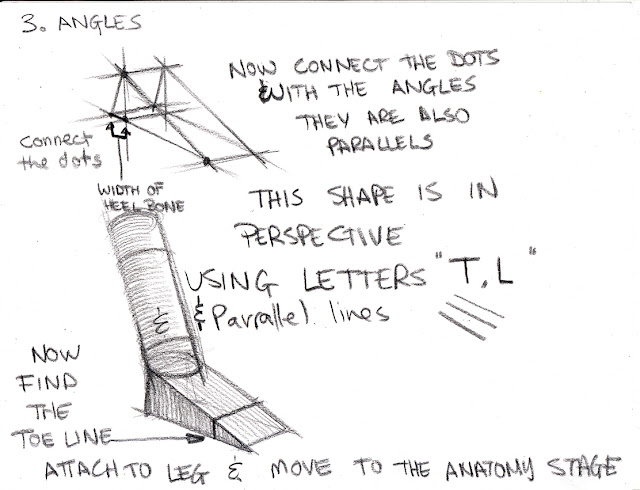 3. ANGLES
NOW CONNECT THE DOTS
& WITH THE ANGLES
THEY ARE ALSO
PARALLELS
Connect
the dots
WIDTH OF
HEEL BONE
THIS SHAPE IS IN
PERSPECTIVE
USING LETTERS "T, L"
& Parrallel lines
&
NOW
FIND
THE
TOE LINE
ATTACH TO LEG & MOVE TO THE ANATOMY STAGE